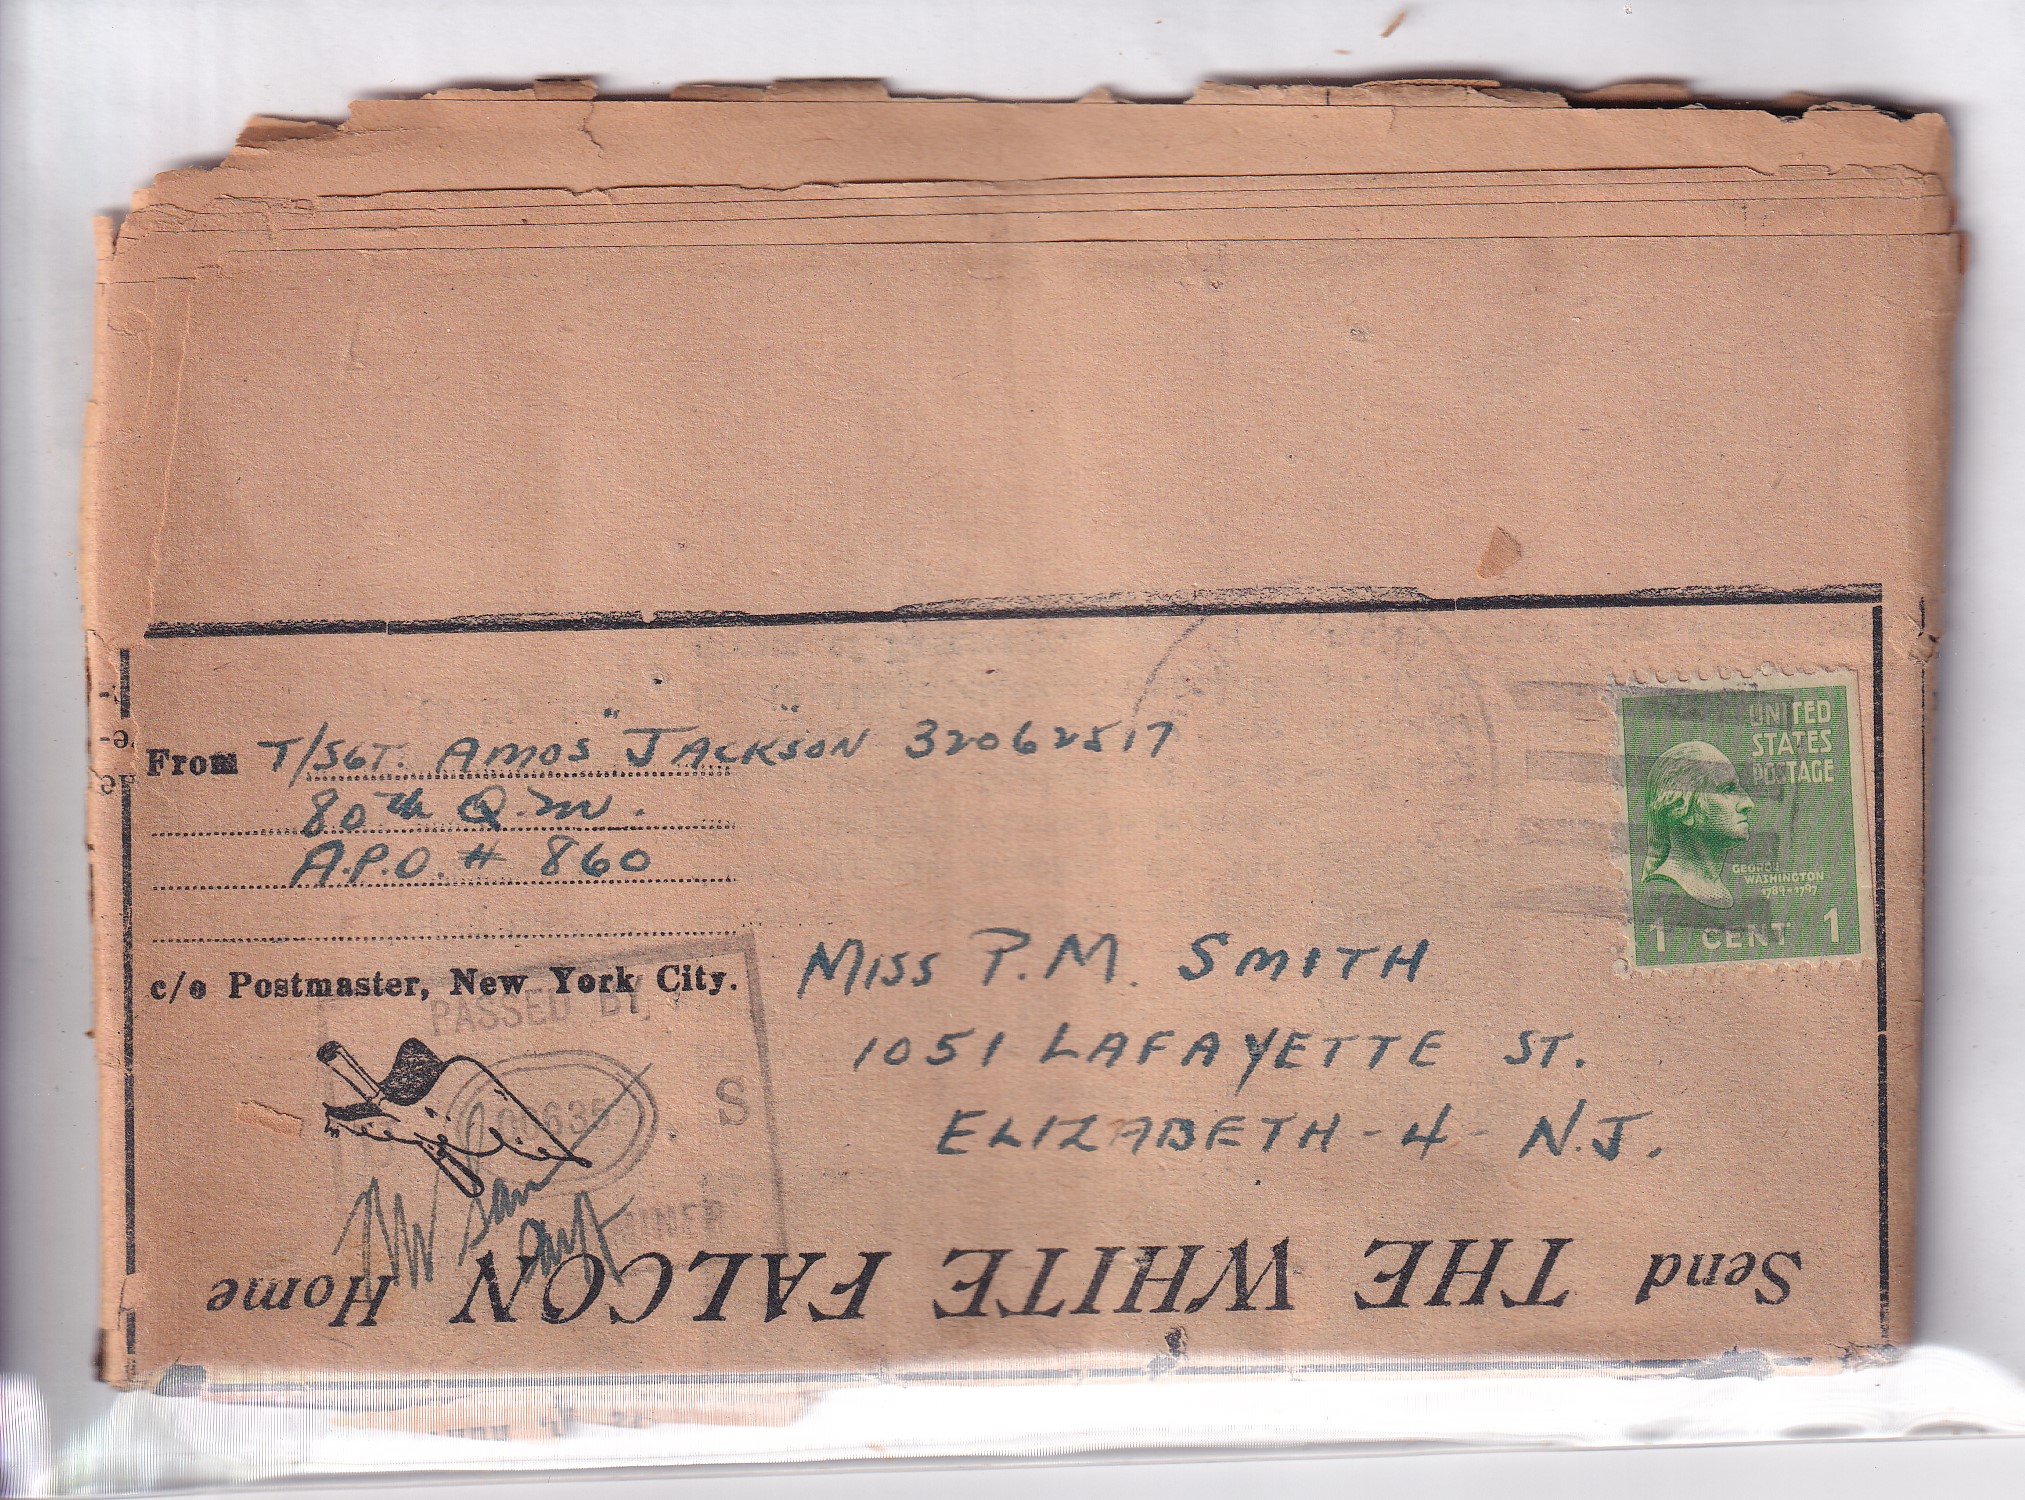 From T/SGT. AMOS "JACKSON" 32062517
80th Q.M.
A.P.O. # 860
c/o Postmaster, New York City.
UNITED
STATES
POSTAGE
GEORGE
WASHINGTON
1789-1797
1 CENT 1
MISS P.M. SMITH
1051 LAFAYETTE ST.
ELIZABETH - 4 - N.J.
PASSED BY
S
Send THE WHITE FALCON Home